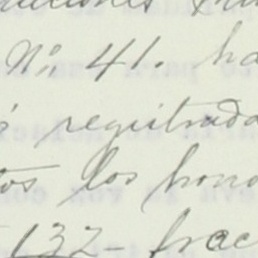 Nº 41. ha
registrada
tos los hono
132- frac